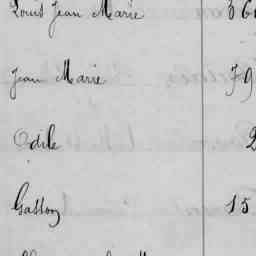 Louis Jean Marie 36
Jean Marie 79
Odile 2
Gaston 15